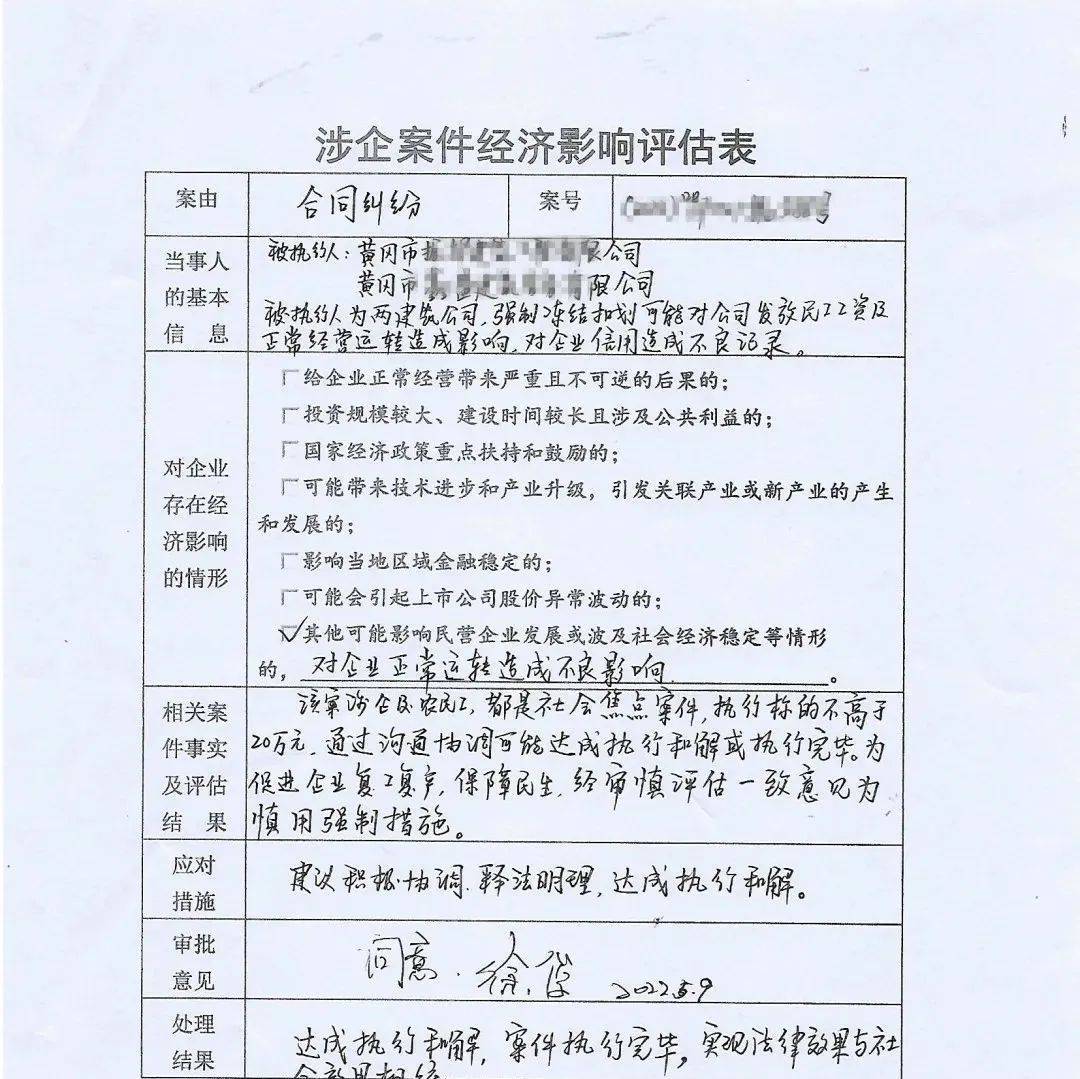 涉企案件经济影响评估表
案由 合同纠纷 案号 号
当事人的基本信息
被执行人：黄冈市 限公司
黄冈市 有限公司
被执行人为两建筑公司，强制冻结扣划可能对公司发放民工工资及
正常经营运转造成影响，对企业信用造成不良记录。
对企业存在经济影响的情形
给企业正常经营带来严重且不可逆的后果的；
投资规模较大、建设时间较长且涉及公共利益的；
国家经济政策重点扶持和鼓励的；
可能带来技术进步和产业升级，引发关联产业或新产业的产生
和发展的；
影响当地区域金融稳定的；
可能会引起上市公司股价异常波动的；
其他可能影响民营企业发展或波及社会经济稳定等情形
的，对企业正常运转造成不良影响。
相关案件事实及评估结果
该案涉企及农民工，都是社会焦点案件，执行标的不高于
20万元，通过沟通协调可能达成执行和解或执行完毕。为
促进企业复工复产，保障民生，经审慎评估一致意见为
慎用强制措施。
应对措施
建议积极协调、释法明理，达成执行和解。
审批意见
同意. 徐 2022.5.9
处理结果
达成执行和解，案件执行完毕，实现法律效果与社